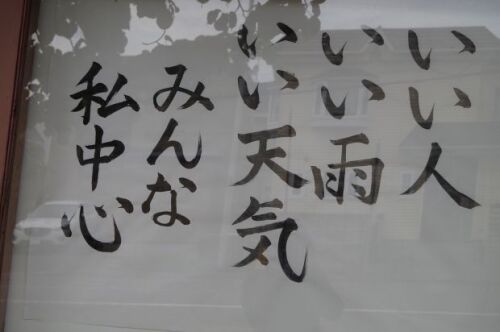 いい人
いい雨
いい天気
みんな
私中心